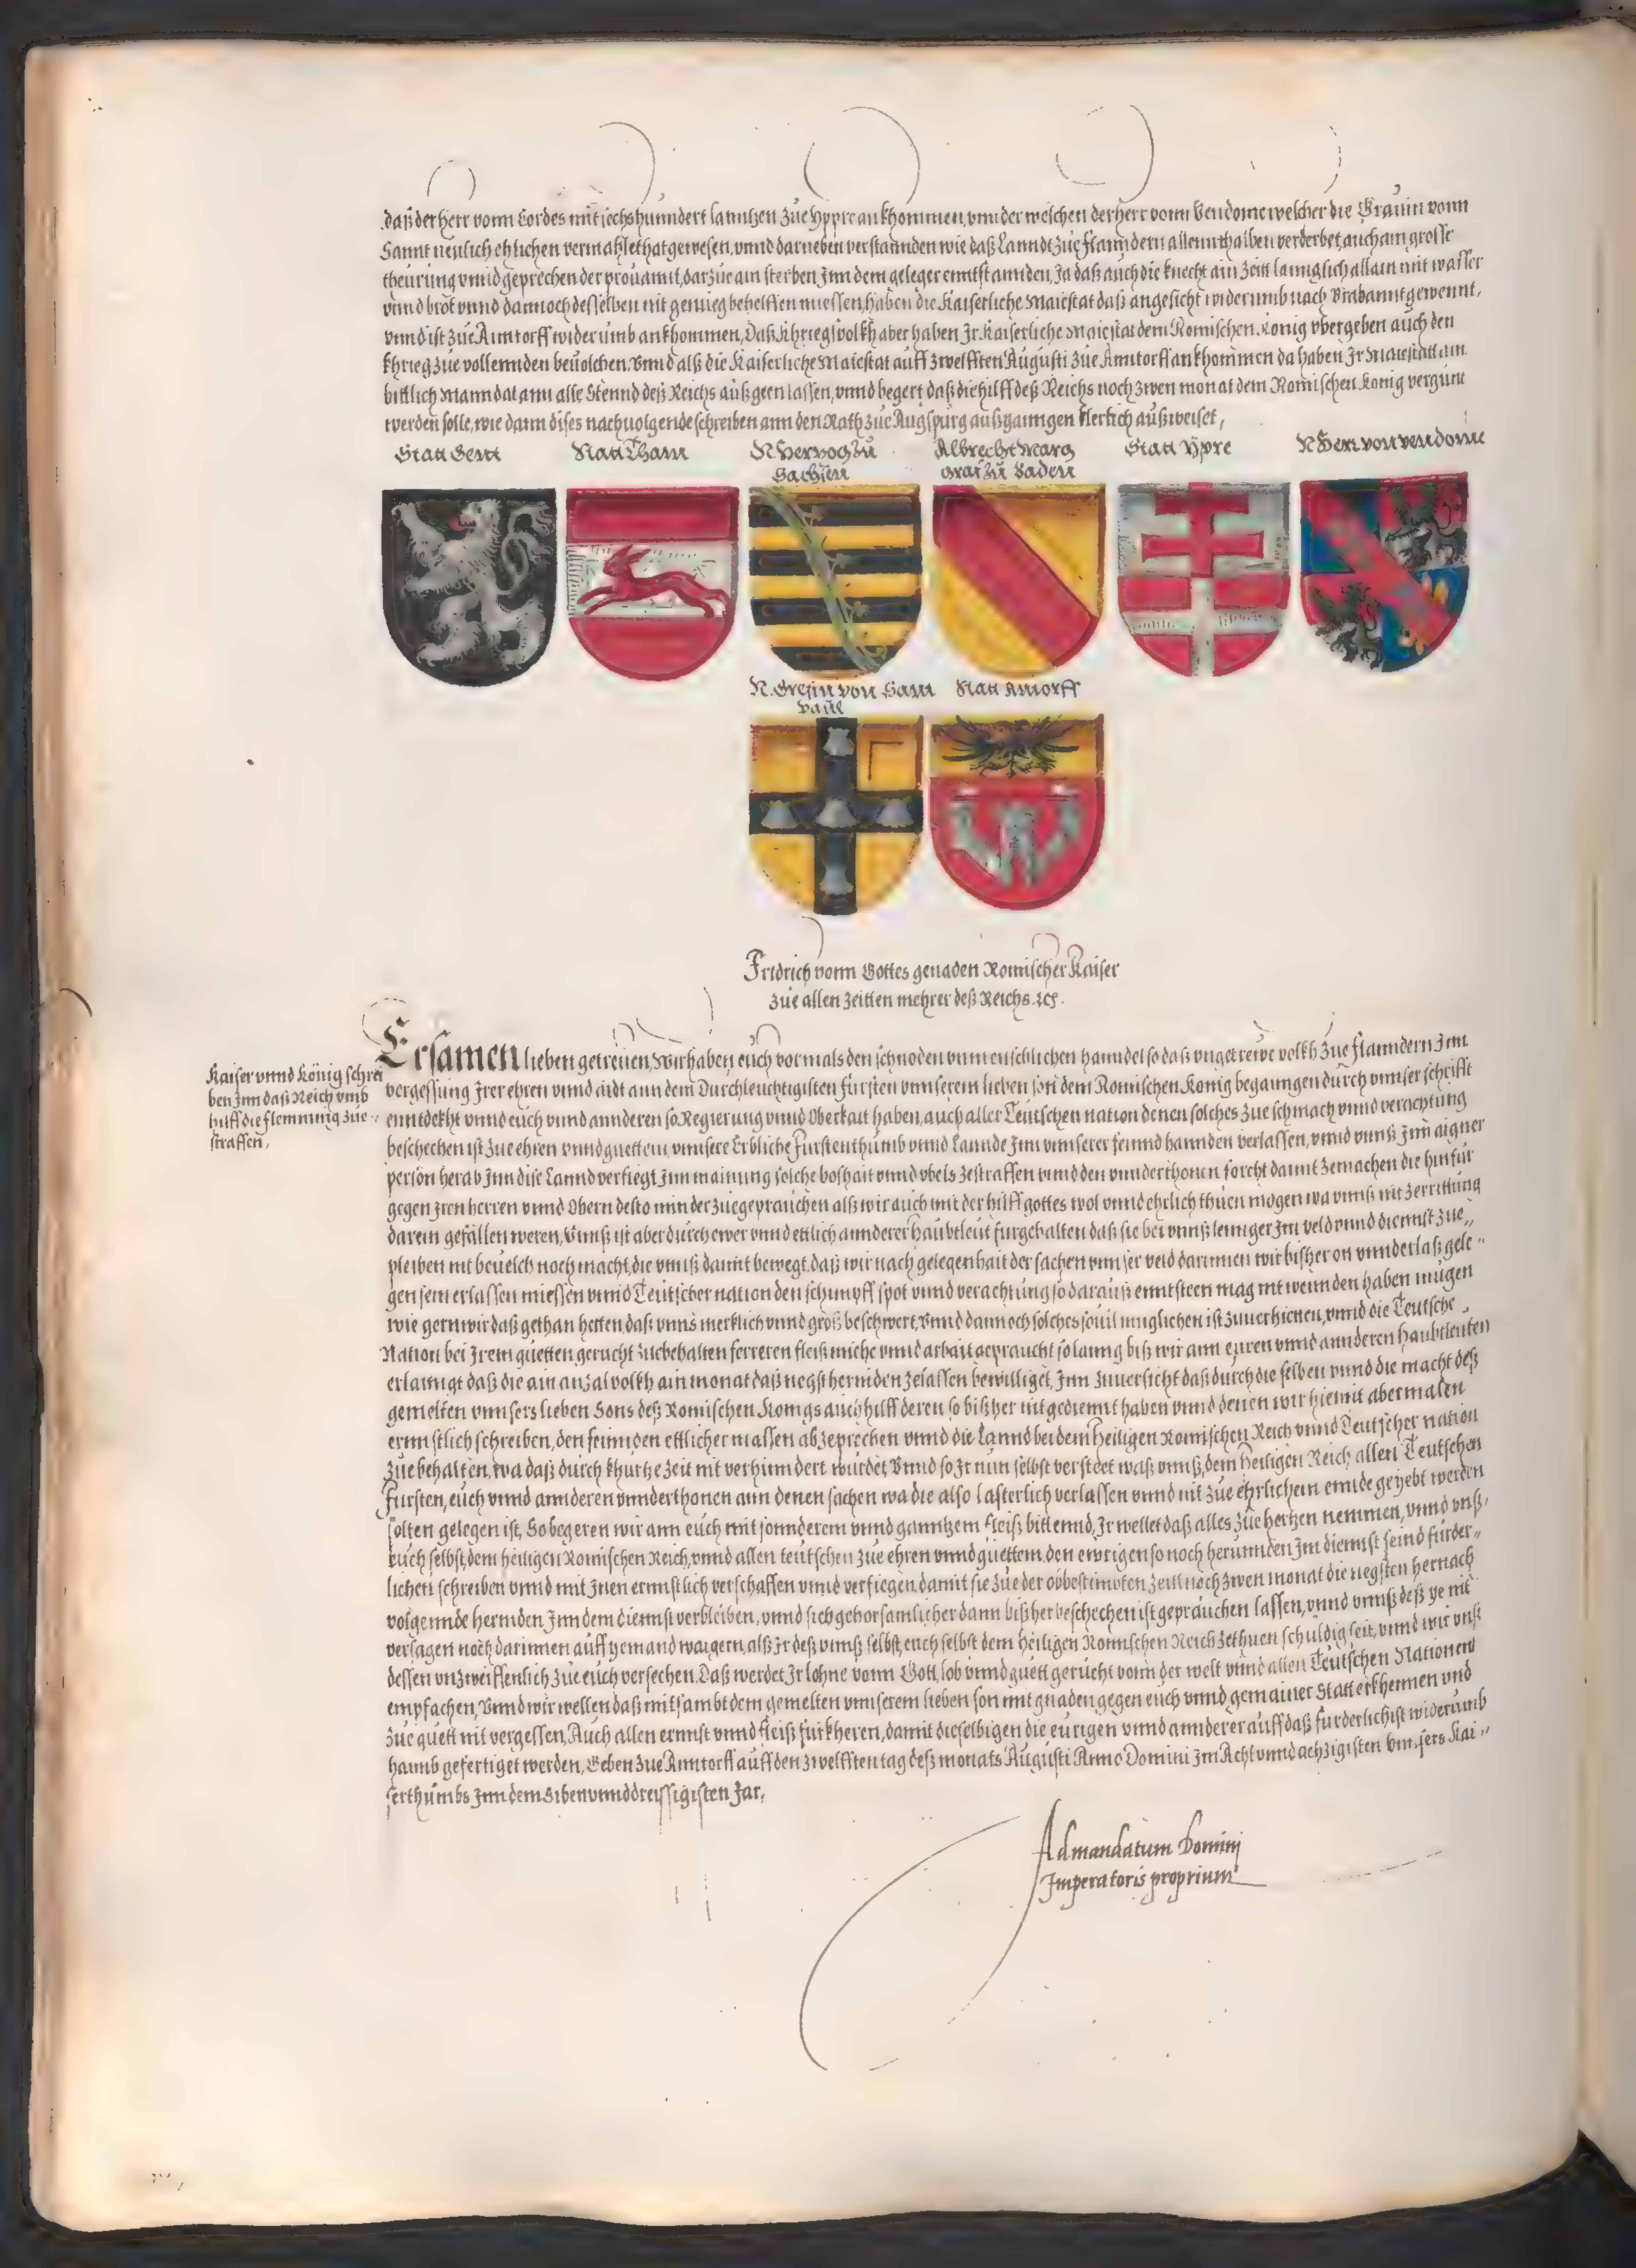 daß der Herr vonn Cordes mit sechshunndert lanntzen zue Yppre ankhommen, vnnder welchen der herr vonn Vendome welcher die Grauin vonn
Sannt neulich ehlichen vermahlet hat gewesen, vnnd darneben verstannden wie daß Lanndt zue flanndern allennthalben verderbet, auch ain grosse
theurung vnnd geprechen der prouannt, darzue ain sterben Inn dem geleger enntstannden, Ja daß auch die knecht ain Zeitt lanng lich allain mit wasser
vnnd brot vnnd dannoch desselben nit genueg behelffen muessen, haben die Kaiserliche Maiestat daß angesicht widerumb nach Brabannt gewennt,
vnnd ist zue Anntorff widerumb ankhommen, Daß Khriegsvolkh aber haben Ir Kaiserliche Maiestat dem Romischen Konig vbergeben auch den
khrieg zue vollennden beuolchen. Vnnd alß die Kaiserliche Maiestat auff zwelfften Augusti zue Anntorff ankhommen da haben Ir Maiestatt ain
bittlich Manndat ann alle Stennd deß Reichs außgeen lassen, vnnd begert daß die hilff deß Reichs noch zwen monat dem Romischen Konig vergunt
werden solle, wie dann dises nachuolgende schreiben ann den Rath zue Augspurg außganngen klerlich außweiset,
Statt Gent
Statt Tham
N. Hertzog zu
Sachsen
Albrecht Marg
graf zu Baden
Statt Ypre
N. Herr von vendome
N. Grefin von Sant
Paul
Statt Antorff
Fridrich vonn Gottes genaden Romischer Kaiser
zue allen Zeitten mehrer deß Reichs. etc.
Kaiser vnnd König schrei
ben Inn daß Reich vmb
hilff die flemming zue
straffen,
Ersamen lieben getreuen, Wir haben euch vormals den schnoden vnmenschlichen hanndel so daß vngetrewe volkh zue flanndern Inn
vergessung Irer ehren vnnd aidt ann dem Durchleuchtigisten fursten vnnserem lieben son dem Romischen Konig beganngen durch vnnser schrifft
enntdekht vnnd euch vnnd annderen so Regierung vnnd Oberkait haben, auch aller Teutschen nation denen solches zue schmach vnnd verachtung
beschechen ist zue ehren vnnd guettem, vnnsere Erbliche Furstenthumb vnnd Lannde Inn vnnserer feinnd hannden verlassen, vnnd vnnß Inn aigner
person herab Inn dise Lannd verfiegt Inn mainung solche boshait vnnd vbels ze straffen vnnd den vnnderthonen forcht damit zemachen die hinfur
gegen Iren herren vnnd Obern desto minder zuegeprauchen alß wir auch mit der hilff gottes wol vnnd ehrlich thuen mogen wa vnnß nit zerrittung
darein gefallen weren, Vnnß ist aber durch ewer vnnd ettlich annderer haubtleut furgehalten daß sie bei vnnß lennger Im veld vnnd diennst zue
pleiben nit beuelch noch macht, die vnnß damit bewegt, daß wir nach gelegenhait der sachen vnnser veld darinnen wir bißher on vnnderlaß gele
gen sein erlassen miessen vnnd Teutscher nation den schimpff spot vnnd verachtung so darauß enntsteen mag nit wennden haben mugen
wie gern wir daß gethan hetten daß vnns merklich vnnd groß beschwert, Vnnd dannoch solches souil muglichen ist zuuerhieten, vnnd die Teutsche
Nation bei Irem guetten gerucht zuebehalten ferreren fleiß miehe vnnd arbait gepraucht so lanng biß wir ann euren vnnd annderen haubtleuten
erlanngt daß die ain anzal volkh ain monat daß negst herniden zelassen bewilliget, Inn zuuersicht daß durch die selben vnnd die macht deß
gemelten vnnsers lieben Sons deß Romischen Konigs auch hilff deren so bißher nit gediennt haben vnnd denen wir hiemit abermalen
ernnstlich schreiben, den feinnden ettlicher massen abzeprechen vnnd die Lannd bei dem Heiligen Romischen Reich vnnd Teutscher nation
zue behalten, wa daß durch khurtze zeit nit verhinndert wurdet, Vnnd so Ir nun selbst verstoet waß vnnß, dem Heiligen Reich allen Teutschen
Fursten, euch vnnd annderen vnnderthonen ann denen sachen wa die also lasterlich verlassen vnnd nit zue ehrlichem ennde geyebt werden
solten gelegen ist, So begeren wir ann euch mit sonnderem vnnd ganntzem fleiß bittennd, Ir wellet daß alles zue hertzen nemmen, vnnd vnß,
Euch selbst, dem heiligen Romischen Reich, vnnd allen teutschen zue ehren vnnd guettem, den ewrigen so noch herunnden Im diennst seind furder
lichen schreiben vnnd mit Inen ernnstlich verschaffen vnnd verfiegen, damit sie zue der obbestimbten Zeitt noch zwen monat die negsten hernach
volgennde herniden Inn dem diennst verbleiben, vnnd sich gehorsamlicher dann bißher beschechen ist geprauchen lassen, vnnd vnnß deß ye nit
versagen noch darinnen auff yemand waigern, alß Ir deß vnnß selbst, euch selbst dem heiligen Romischen Reich zethuen schuldig seit, vnnd wir vnß
dessen vnzweiffenlich zue euch versechen, Daß werdet Ir lohne vonn Gott, lob vnnd guett gerucht vonn der welt vnnd allen Teutschen Nationen
empfachen, Vnnd wir wellen daß mitsambt dem gemelten vnnserem lieben son mit gnaden gegen euch vnnd gemainer Statt erkhennen vnd
zue guett nit vergessen, Auch allen ernnst vnnd fleiß furkheren, damit dieselbigen die eurigen vnnd annderer auff daß furderlichist widerumb
haimb gefertiget werden, Geben zue Anntorff auff den zwelfften tag deß monats Augusti Anno Domini Im Acht vnnd achzigisten Vnnsers Kai
serthumbs Inn dem Sibenvnnddreissigisten Jar.
Ad mandatum Domini
Imperatoris proprium